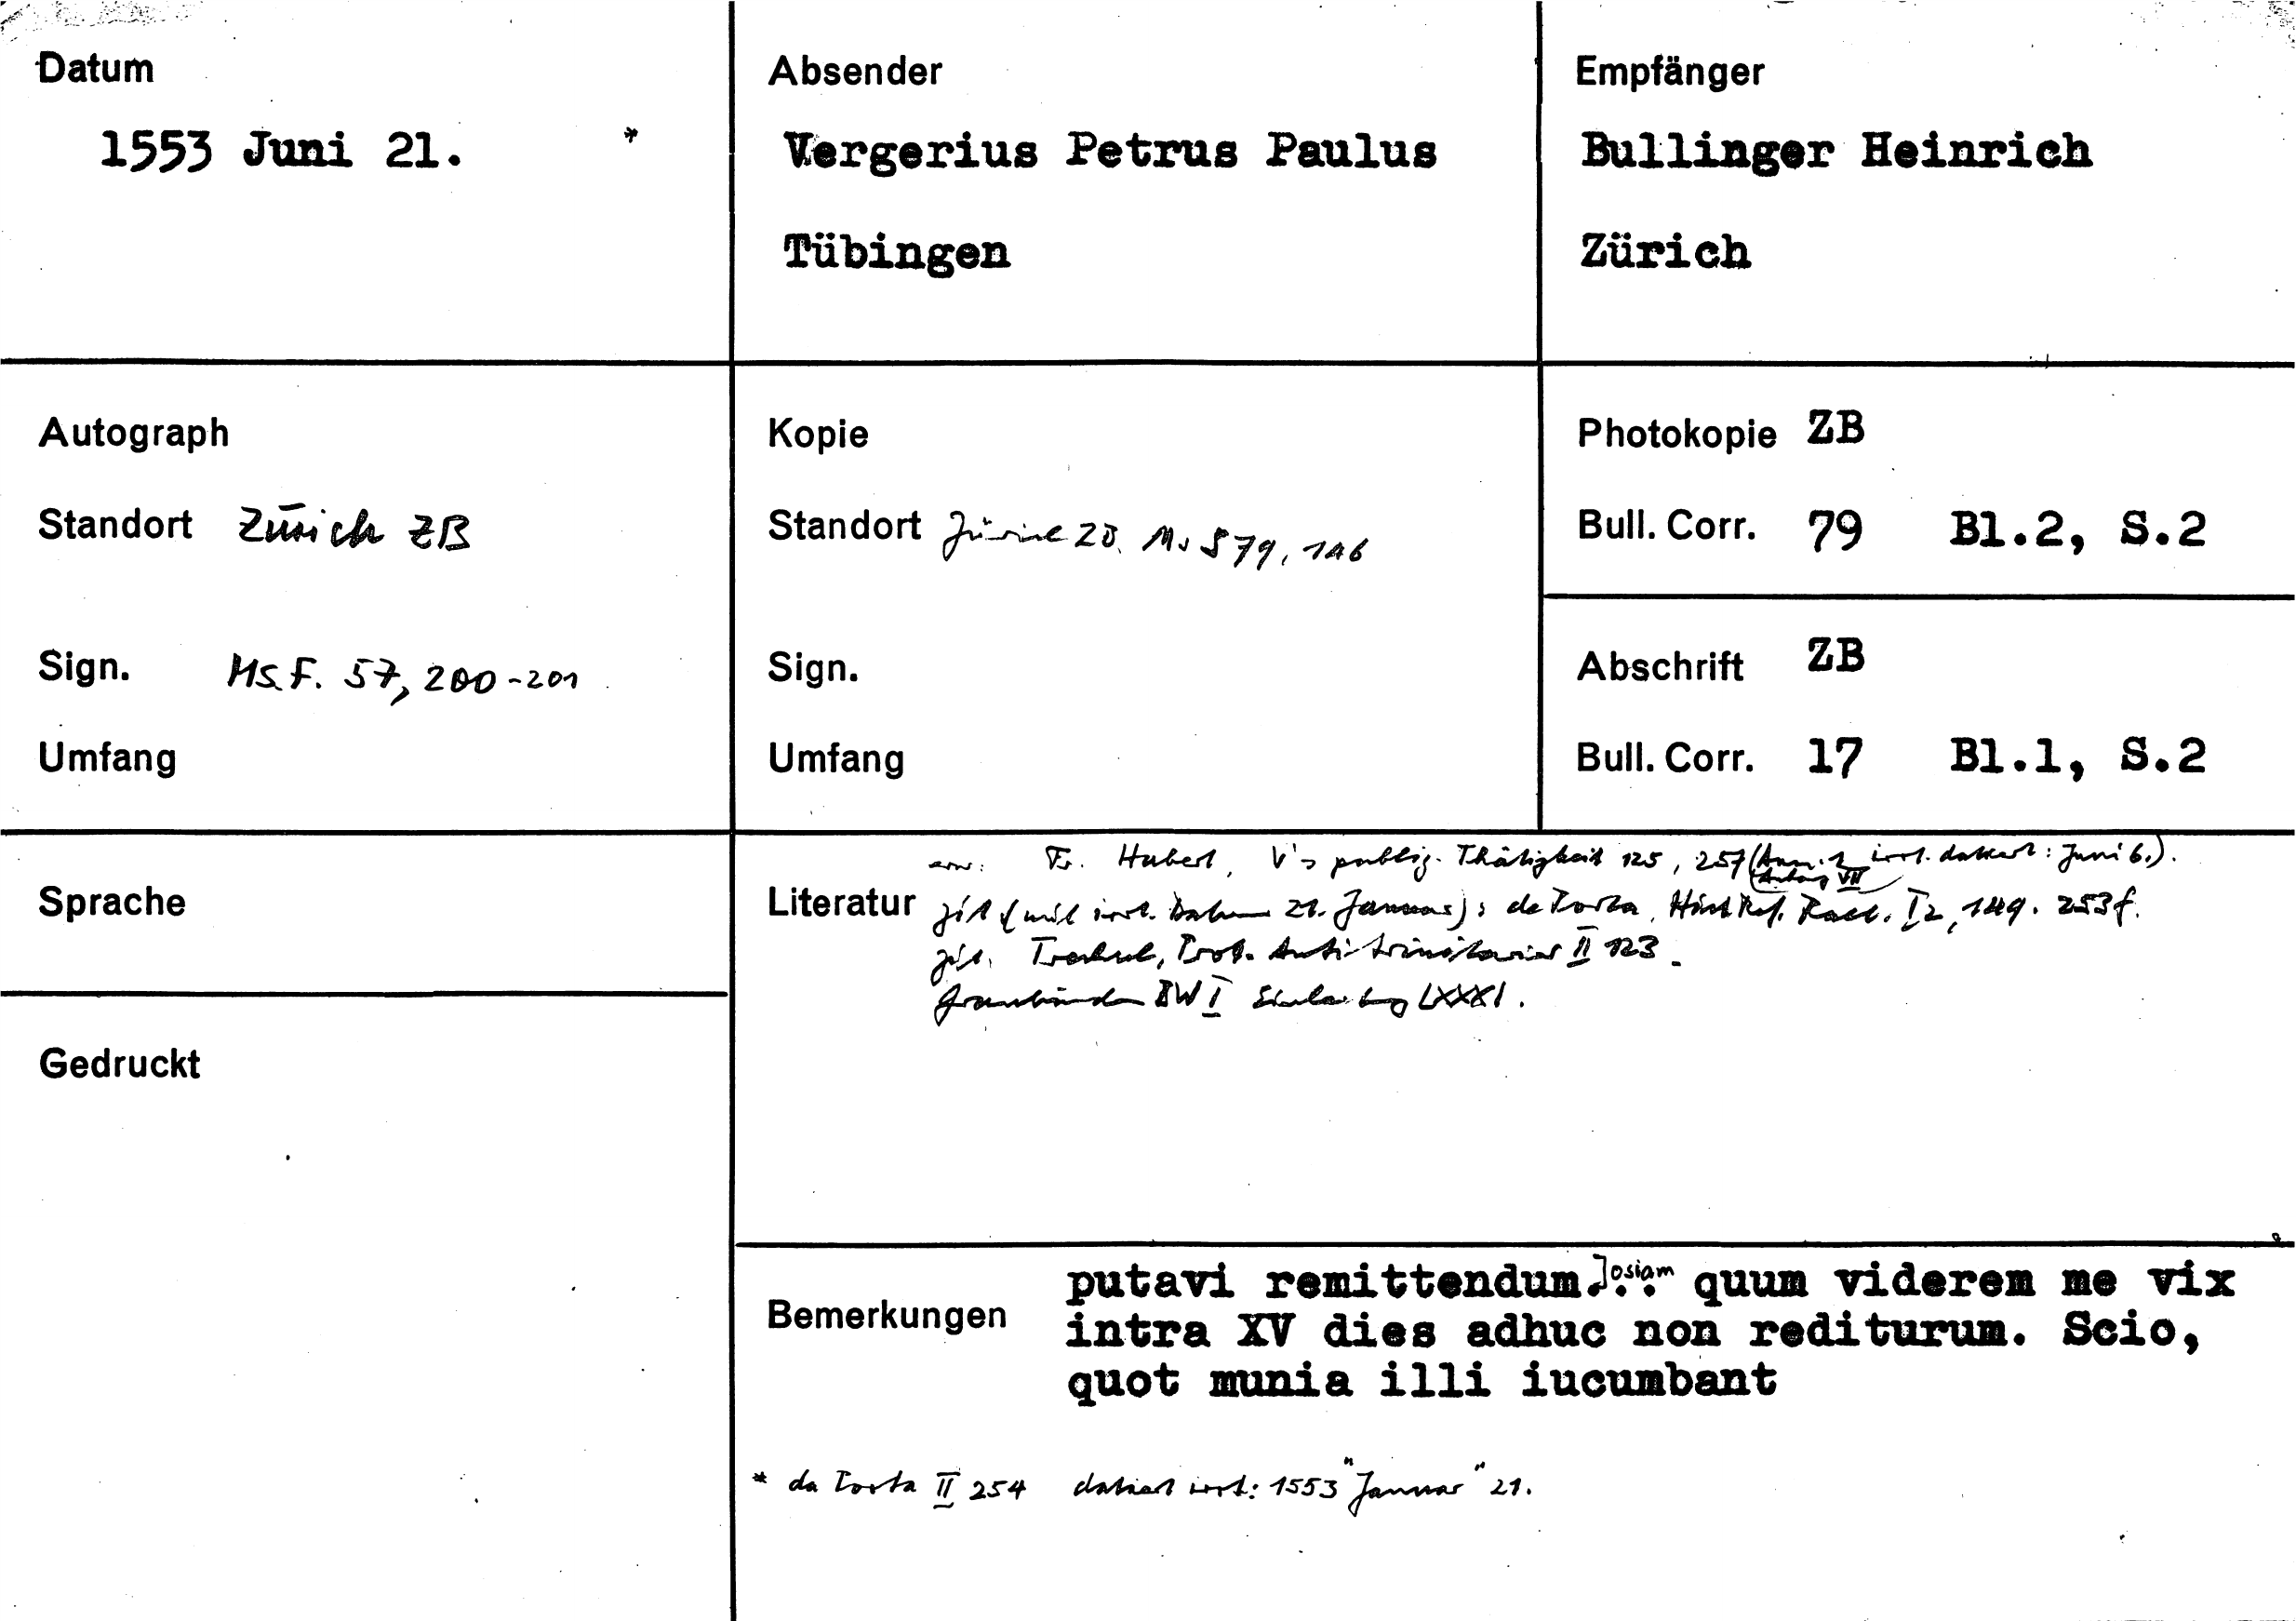 Datum
1553 Juni 21. *
Absender
Vergerius Petrus Paulus
Tübingen
Empfänger
Bullinger Heinrich
Zürich
Autograph
Standort Zürich ZB
Sign. Ms. F. 57, 200-201
Umfang
Kopie
Standort Zürich ZB. Ms S 79, 146
Sign.
Umfang
Photokopie ZB
Bull. Corr. 79 Bl.2, S.2
Abschrift ZB
Bull. Corr. 17 Bl.1, S.2
Sprache
Gedruckt
erw: Fr. Hubert, V's publiz. Thätigkeit 125, 257 (Anm. 1 irrt. datiert: Juni 6.).
Anhang VII
Literatur zit (mit irrt. Datum 21. Januar): de Porta, Hist Ref. Raet. I 2, 149. 253f.
zit. Trechsel, Prot. Antitrinitarier II 123.
Graubünden BW I Einleitung LXXXI.
Bemerkungen
putavi remittendum Josiam ... quum viderem me vix
intra XV dies adhuc non rediturum. Scio,
quot munia illi iucumbant
* da Porta II 254 datiert irrt: 1553 "Januar" 21.